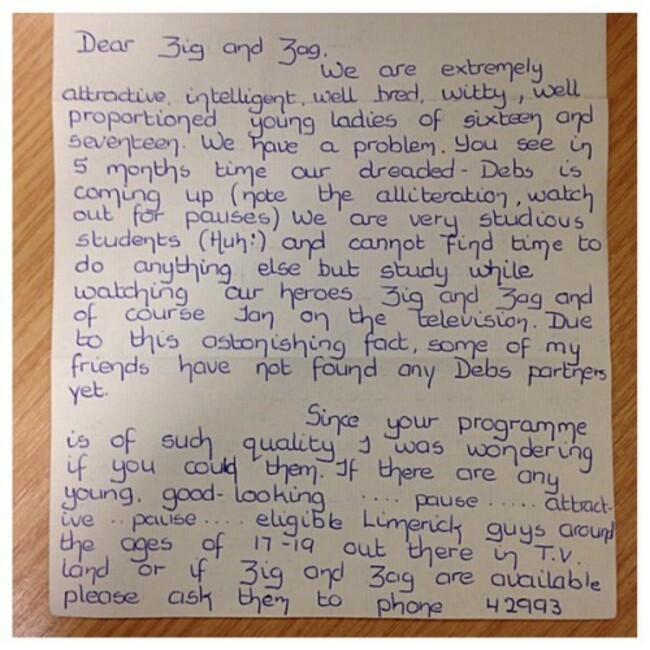 Dear Zig and Zag,
We are extremely
attractive, intelligent, well bred, witty, well
proportioned young ladies of sixteen and
seventeen. We have a problem. You see in
5 months time our dreaded - Debs is
coming up (note the alliteration, watch
out for pauses) We are very studious
students (Huh!) and cannot find time to
do anything else but study while
watching our heroes Zig and Zag and
of course Ian on the television. Due
to this astonishing fact, some of my
friends have not found any Debs partners
yet.
Since your programme
is of such quality I was wondering
if you could them. If there are any
young, good-looking .... pause ..... attract-
ive .. pause .... eligible Limerick guys around
the ages of 17-19 out there in T.V.
land or if Zig and Zag are available
please ask them to phone 42993